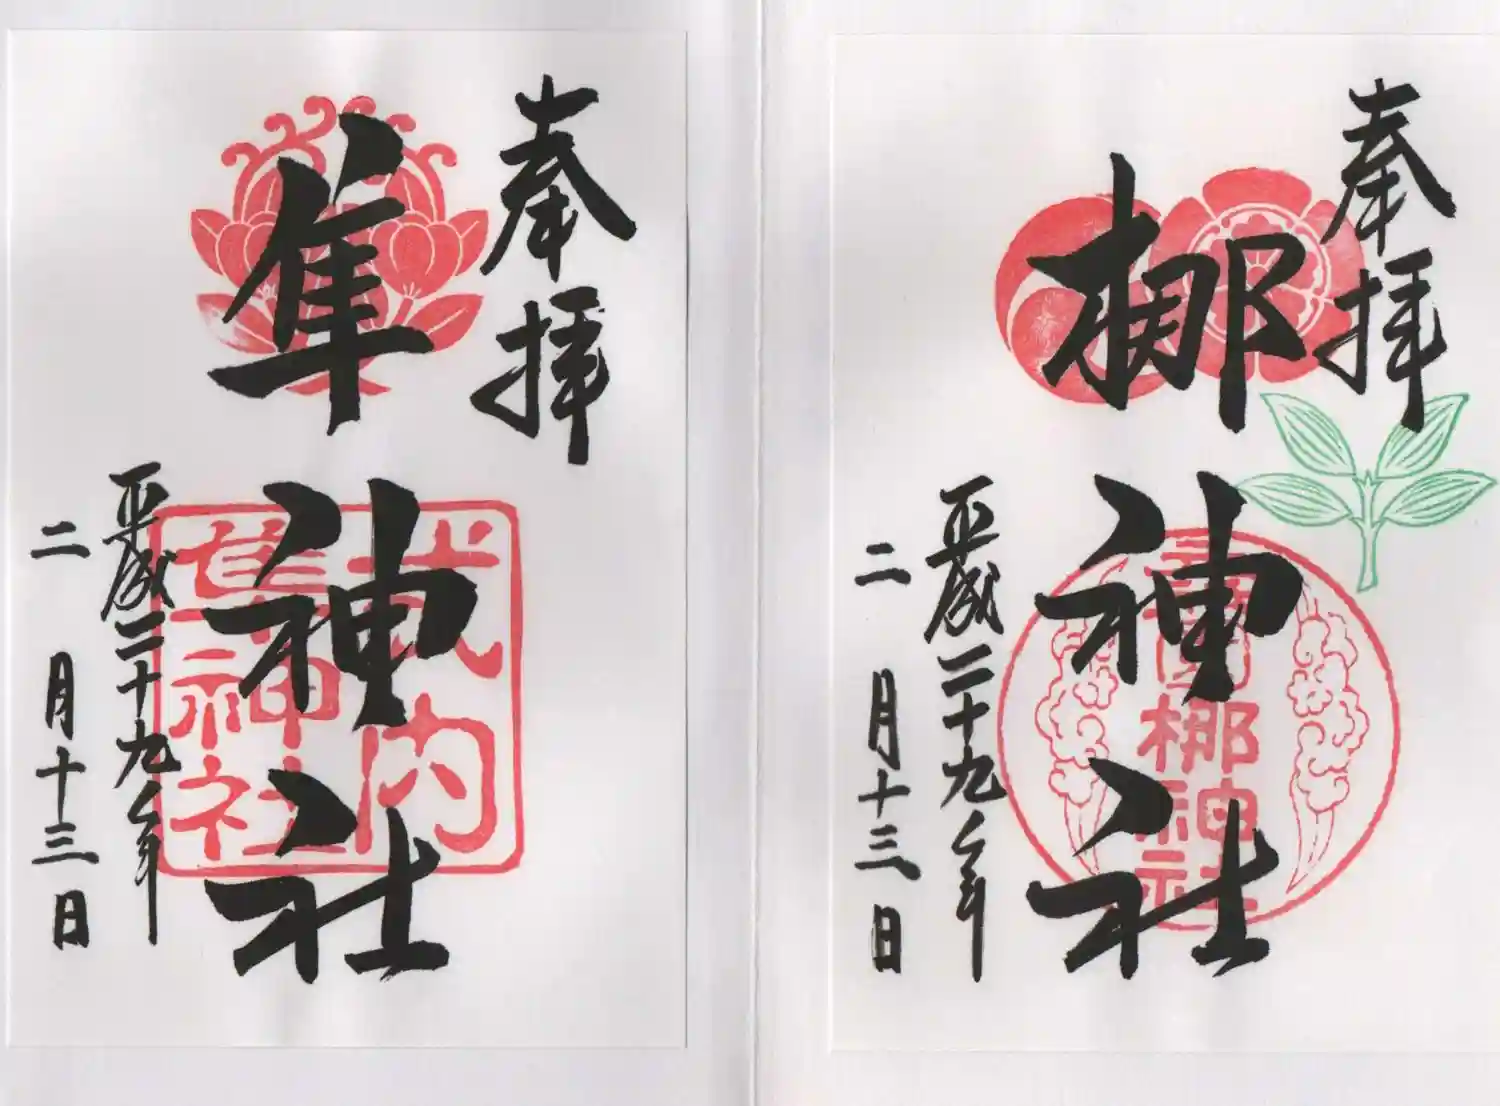 奉拝
梛神社
園梛神社
平成二十九年
二月十三日
奉拝
隼神社
式内
隼神社
平成二十九年
二月十三日